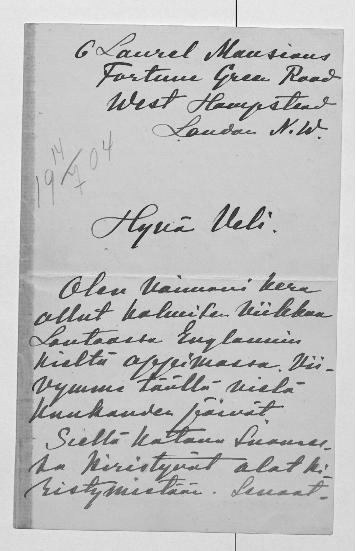 6 Laurel Mansions
Fortune Green Road
West Hampstead
London N.W.
19 14/7 04
Hyvä Veli.
Olen vaimoni kera
ollut kolmisen viikkoa
Lontoossa Englannin
kieltä oppimassa. Vii-
vymme täällä vielä
kuukauden päivät
Siellä kotona Suomes-
sa kiristyvät olot ki-
ristymistään. Senaat-